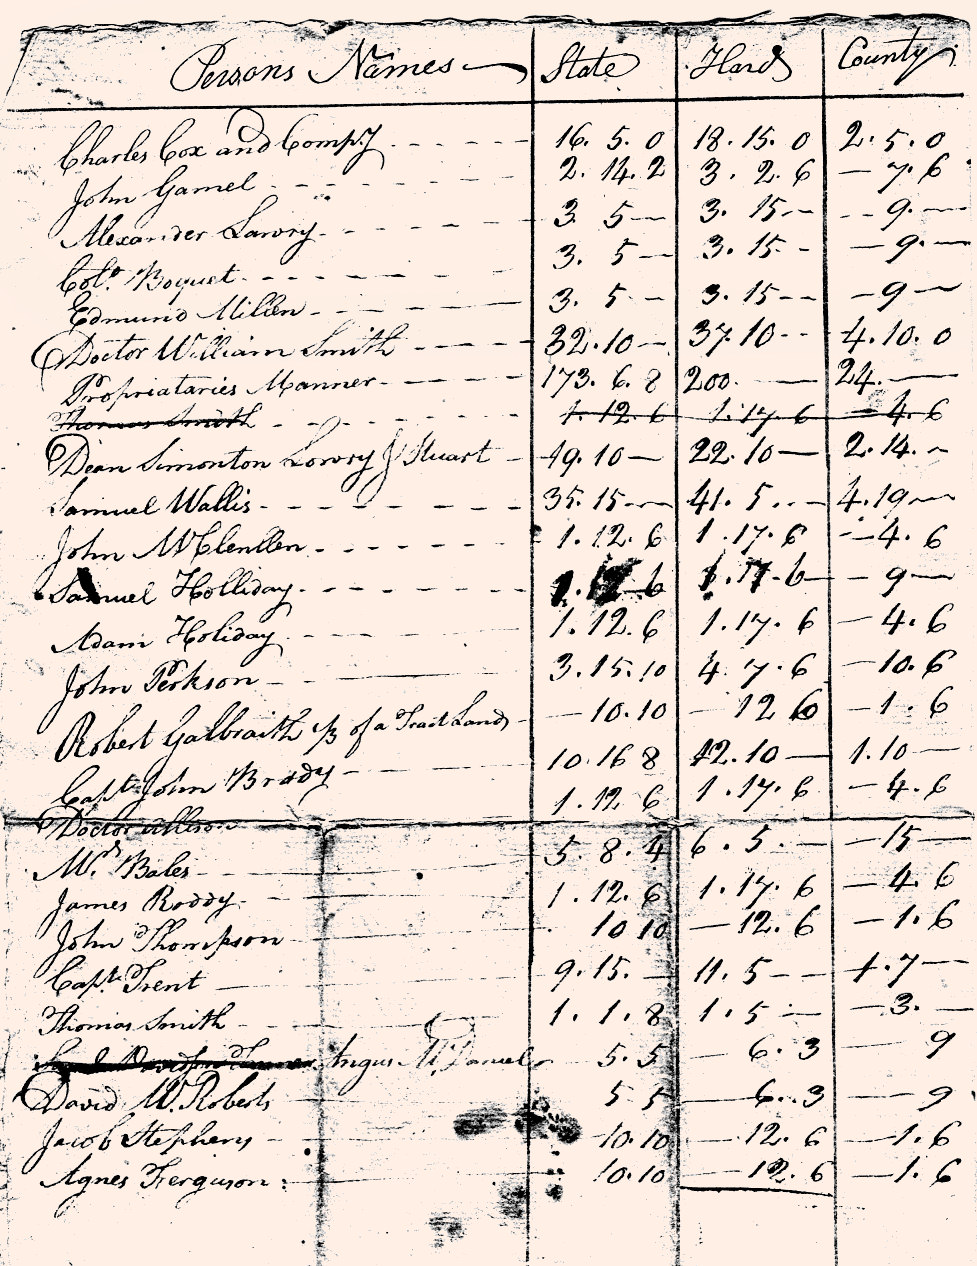 Persons Names State Hard County
Charles Cox and Comp.y 16. 5. 0 18. 15. 0 2. 5. 0
John Gamel 2. 14. 2 3. 2. 6 — 7. 6
Alexander Lawry 3 5 — 3. 15 — — 9. —
Col.o Boquet 3. 5 — 3. 15 — — 9. —
Edmund Millen 3. 5 — 3. 15 — — 9 —
Doctor William Smith 32. 10 — 37. 10 — 4. 10. 0
Propriataries Manner 173. 6. 8 200. — 24. —
Thomas Smith 1. 12. 6 1. 17. 6 — 4. 6
Dean Simonton Lowry & Stuart 19. 10 — 22. 10 — 2. 14. —
Samuel Wallis 35. 15 — 41. 5. — 4. 19 —
John McClenllen 1. 12. 6 1. 17. 6 — 4. 6
Samuel Holliday 1. 12 6 1. 17. 6 — 9 —
Adam Holiday 1. 12. 6 1. 17. 6 — 4. 6
John Perkson 3. 15. 10 4 7. 6 — 10. 6
Robert Galbraith 1/3 of a Tract Land — 10. 10 — 12 6 — 1. 6
Capt. John Brady 10. 16 8 12. 10 — 1. 10 —
Doctor Allison 1. 12 6 1. 17. 6 — 4. 6
Mr. Bales 5. 8. 4 6. 5. — — 15 —
James Roddy 1. 12. 6 1. 17. 6 — 4. 6
John Thompson 10 10 — 12. 6 — 1. 6
Capt. Trent 9. 15. — 11. 5 — 1. 7 —
Thomas Smith 1. 1. 8 1. 5 — — 3. —
Angus Mc.Daniel 5. 5 — 6. 3 9
David Mc.Roberts 5 5 — 6. 3 — 9
Jacob Stephens 10. 10 — 12. 6 — 1. 6
Agnes Ferguson 10. 10 — 12. 6 — 1. 6